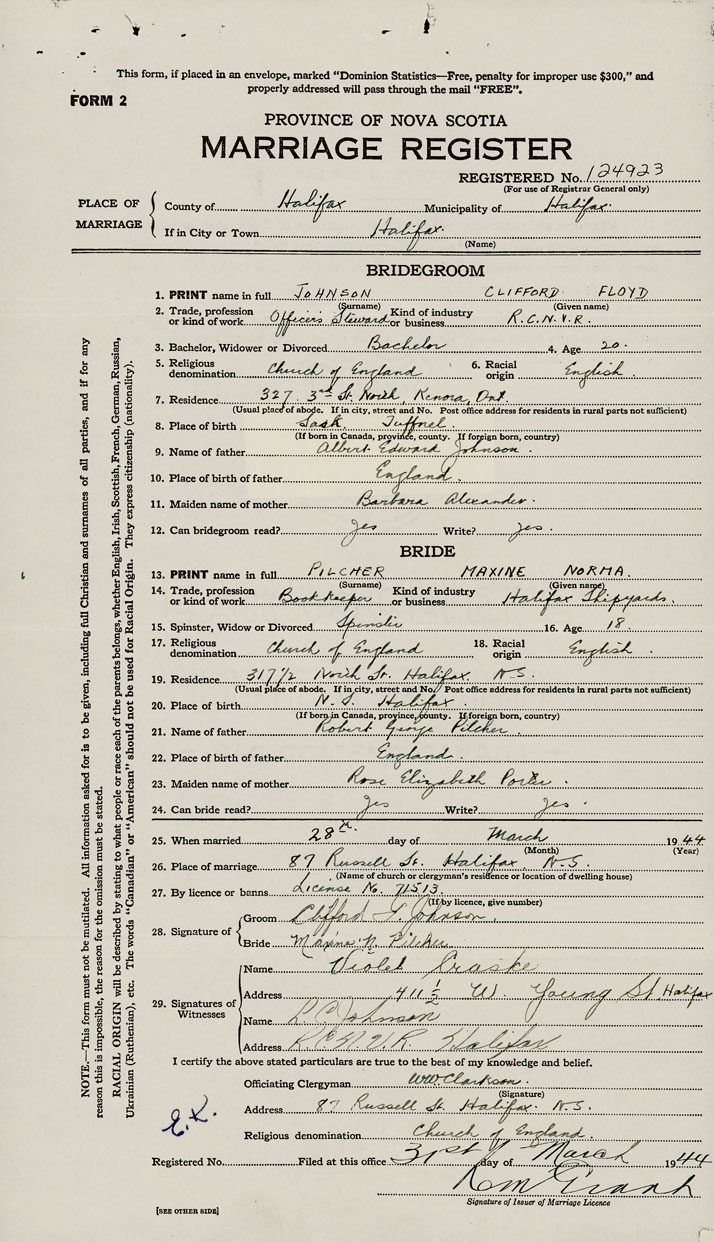 This form, if placed in an envelope, marked "Dominion Statistics—Free, penalty for improper use $300," and
properly addressed will pass through the mail "FREE".
FORM 2
PROVINCE OF NOVA SCOTIA
MARRIAGE REGISTER
REGISTERED No. 124923
(For use of Registrar General only)
PLACE OF MARRIAGE
County of Halifax Municipality of Halifax.
If in City or Town Halifax.
(Name)
BRIDEGROOM
1. PRINT name in full JOHNSON CLIFFORD FLOYD
(Surname) (Given name)
2. Trade, profession or kind of work Officers Steward Kind of industry or business R.C.N.V.R.
3. Bachelor, Widower or Divorced Bachelor 4. Age 20.
5. Religious denomination Church of England 6. Racial origin English.
7. Residence 327 3rd St. North, Kenora, Ont.
(Usual place of abode. If in city, street and No. Post office address for residents in rural parts not sufficient)
8. Place of birth Sask Tuffnel.
(If born in Canada, province, county. If foreign born, country)
9. Name of father Albert Edward Johnson.
10. Place of birth of father England.
11. Maiden name of mother Barbara Alexander.
12. Can bridegroom read? yes Write? yes.
BRIDE
13. PRINT name in full PILCHER MAXINE NORMA.
(Surname) (Given name)
14. Trade, profession or kind of work Bookkeeper Kind of industry or business Halifax Shipyards.
15. Spinster, Widow or Divorced Spinster 16. Age 18.
17. Religious denomination Church of England 18. Racial origin English.
19. Residence 317 1/2 North St. Halifax N.S.
(Usual place of abode. If in city, street and No. Post office address for residents in rural parts not sufficient)
20. Place of birth N.S. Halifax.
(If born in Canada, province, county. If foreign born, country)
21. Name of father Robert George Pilcher.
22. Place of birth of father England.
23. Maiden name of mother Rose Elizabeth Porter.
24. Can bride read? yes Write? yes.
25. When married 28th. day of March 1944
(Month) (Year)
26. Place of marriage 87 Russell St. Halifax N.S.
(Name of church or clergyman's residence or location of dwelling house)
27. By licence or banns License No. 71513.
(If by licence, give number)
28. Signature of
Groom Clifford F. Johnson.
Bride Maxine N. Pilcher
29. Signatures of Witnesses
Name Violet Craske
Address 411 1/2 W. Young St Halifax
Name Johnson
Address R.C.N.V.R. Halifax
I certify the above stated particulars are true to the best of my knowledge and belief.
Officiating Clergyman WW Clarkson.
(Signature)
Address 87 Russell St. Halifax. N.S.
Religious denomination Church of England.
Registered No. Filed at this office 31st day of March 1944
Signature of Issuer of Marriage Licence
[SEE OTHER SIDE]
NOTE.—This form must not be mutilated. All information asked for is to be given, including full Christian and surnames of all parties, and if for any
reason this is impossible, the reason for the omission must be stated.
RACIAL ORIGIN will be described by stating to what people or race each of the parents belongs, whether English, Irish, Scottish, French, German, Russian,
Ukrainian (Ruthenian), etc. The words "Canadian" or "American" should not be used for Racial Origin. They express citizenship (nationality).
E.K.